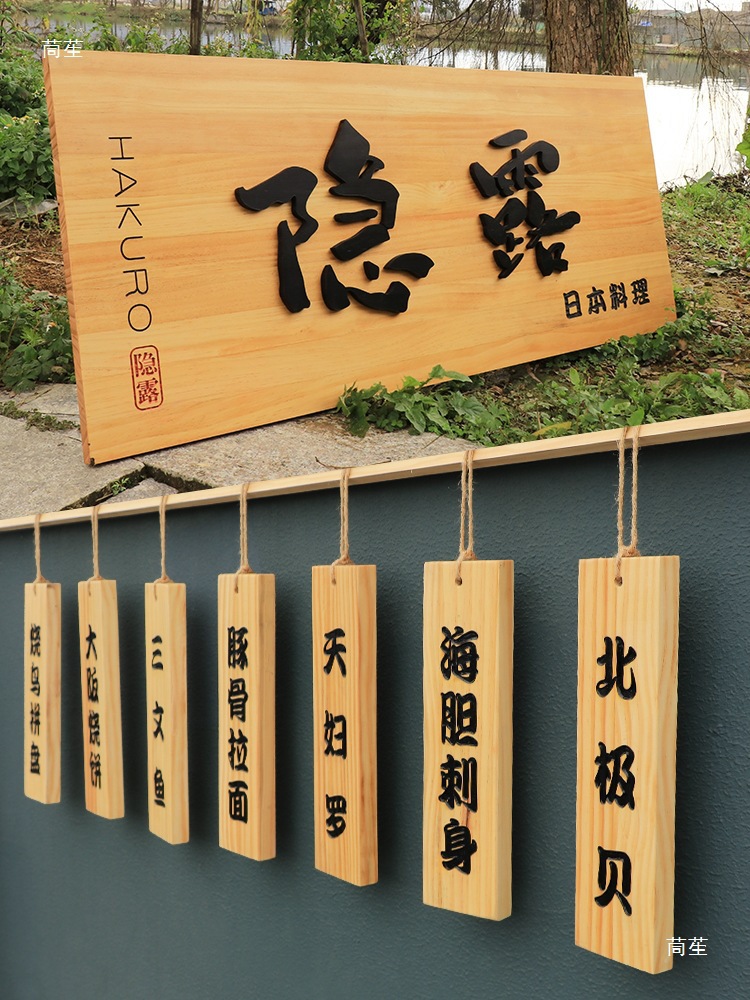 茼笙
HAKURO
隐露
隐露
日本料理
烧鸟拼盘
大阪烧饼
三文鱼
豚骨拉面
天妇罗
海胆刺身
北极贝
茼笙